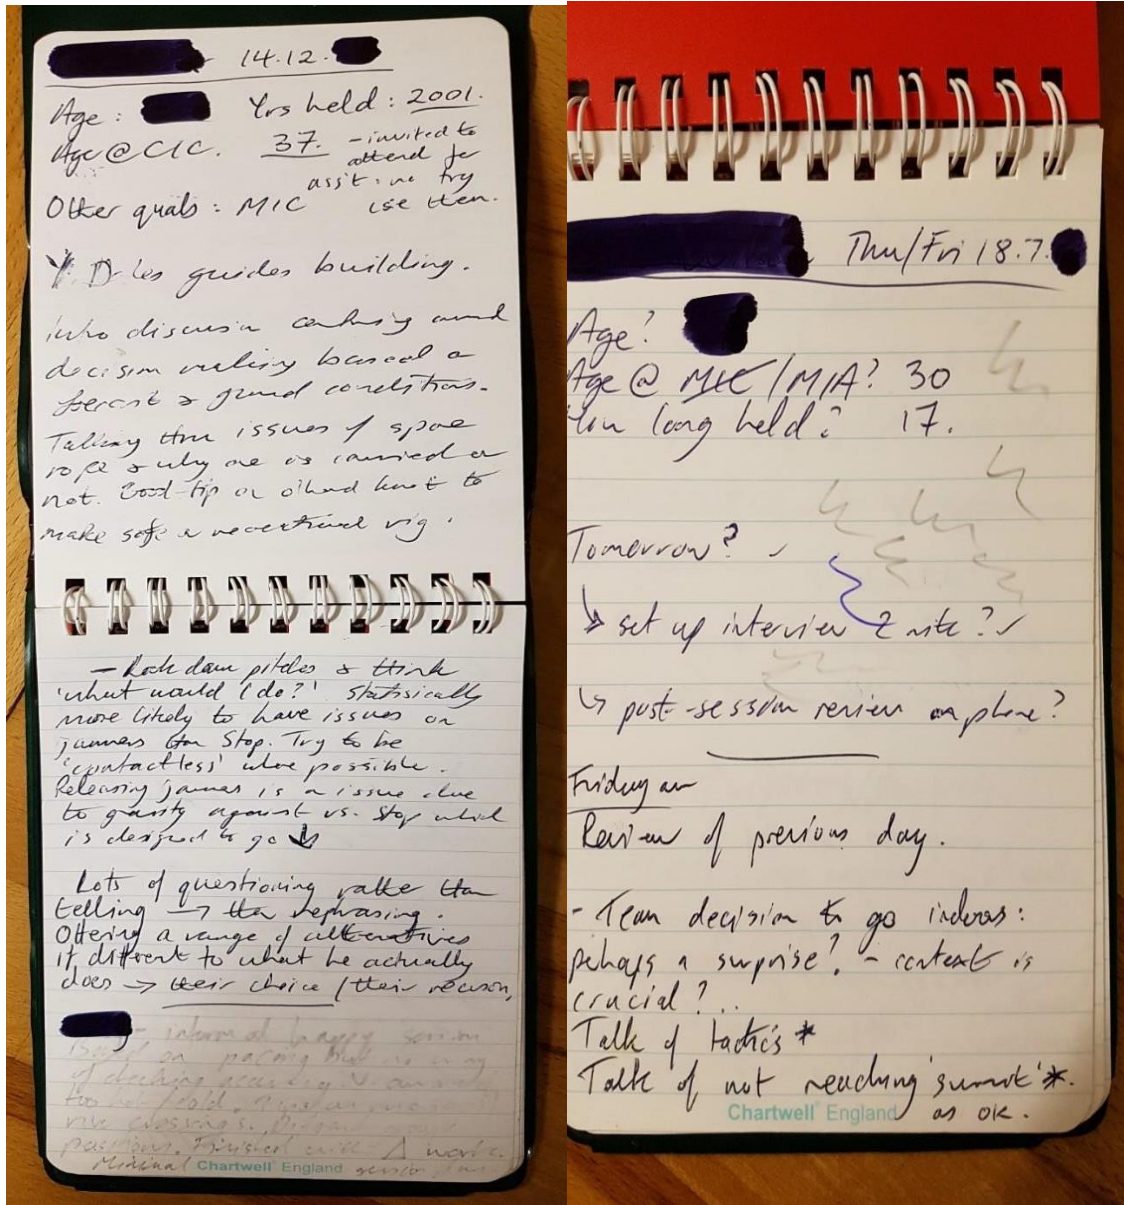 14.12.
Age: Yrs held: 2001.
Age @ CIC. 37. - invited to
attend for
assit: no try
use them.
Other quals: MIC
guides building.
Intro discussion centering around
decision making based on
forecast & ground conditions.
Talking thru issues of spare
rope & why one is carried or
not. Good tip on o'hand knot to
make safe a recreational rig.
- Look down pitches & think
'what would I do?'. Statisically
more likely to have issues on
jammers than Stop. Try to be
'contactless' where possible.
Releasing jammer is a issue due
to gravity against vs. Stop which
is designed to go ↓
Lots of questioning rather than
telling → then rephrasing.
Offering a range of alternatives
if different to what he actually
does → their choice / their reason,
- informal happy session
based on pacing
of checking accuracy
too hot / cold.
river crossings.
positions. Finished with Δ work.
Minimal session
Chartwell England
Thu/Fri 18.7.
Age?
Age @ MIC / MIA? 30
How long held? 17.
Tomorrow? ✓
↳ set up interview 2 nite? ✓
↳ post-session review on phone?
Friday am
Review of previous day.
- Team decision to go indoors:
perhaps a surprise? - context is
crucial?..
Talk of tactics *
Talk of not reaching 'summit' *.
as OK.
Chartwell England